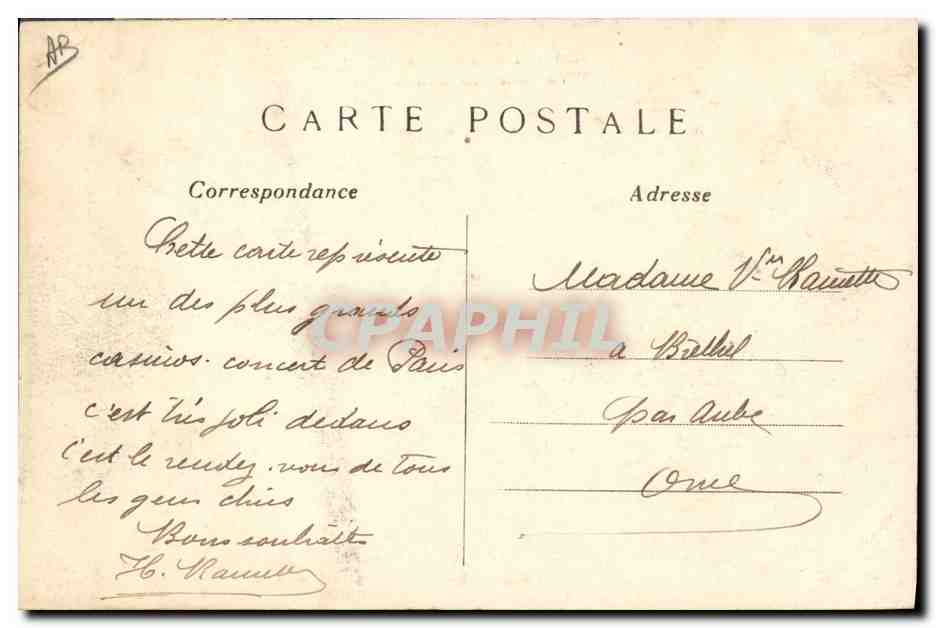 AB
CARTE POSTALE
Correspondance
Cette carte représente
un des plus grands
casinos-concert de Paris
c'est très joli dedans
c'est le rendez-vous de tous
les gens chics
Bons souhaits
H.
Adresse
Madame Vve
a
par Aube
Orne
CPAPHIL